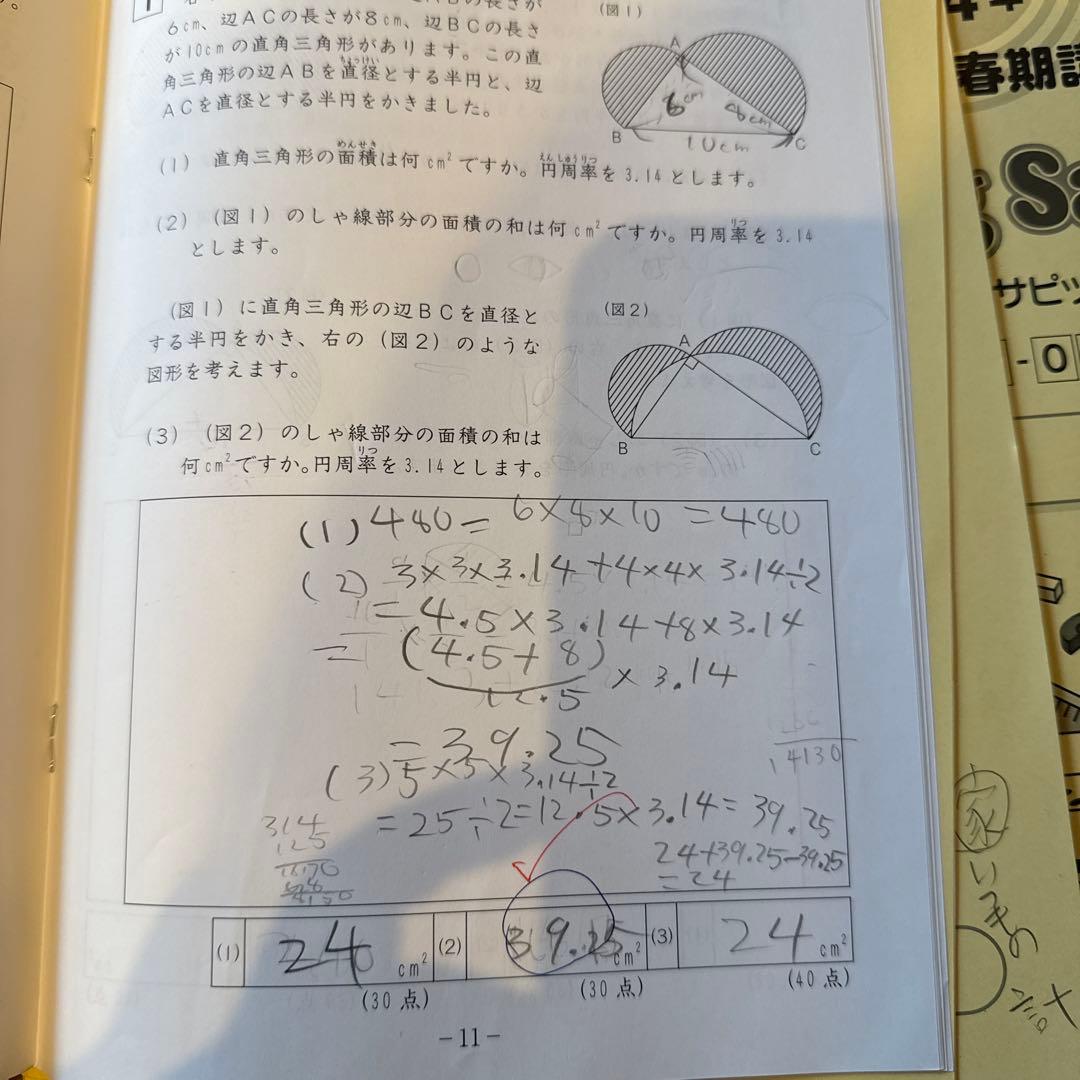 6cm、辺ACの長さが8cm、辺BCの長さ
が10cmの直角三角形があります。この直
角三角形の辺ABを直径とする半円と、辺
ACを直径とする半円をかきました。
(図1)
A
6cm
8cm
B
10cm
C
(1) 直角三角形の面積は何cm²ですか。円周率を3.14とします。
(2) (図1)のしゃ線部分の面積の和は何cm²ですか。円周率を3.14
とします。
(図1)に直角三角形の辺BCを直径と
する半円をかき、右の(図2)のような
図形を考えます。
(図2)
A
B
C
(3) (図2)のしゃ線部分の面積の和は
何cm²ですか。円周率を3.14とします。
(1) 480= 6×8×10 =480
(2) 3×3×3.14+4×4×3.14÷2
=4.5×3.14+8×3.14
=(4.5+8)×3.14
12.5
=39.25
(3) 5×5×3.14÷2
=25÷2=12.5×3.14=39.25
24+39.25-39.25
=24
314
125
4130
(1) 24 cm² (2) 39.25 cm² (3) 24 cm²
(30点) (30点) (40点)
-11-
春期講
Sa
サピッ
-0
家